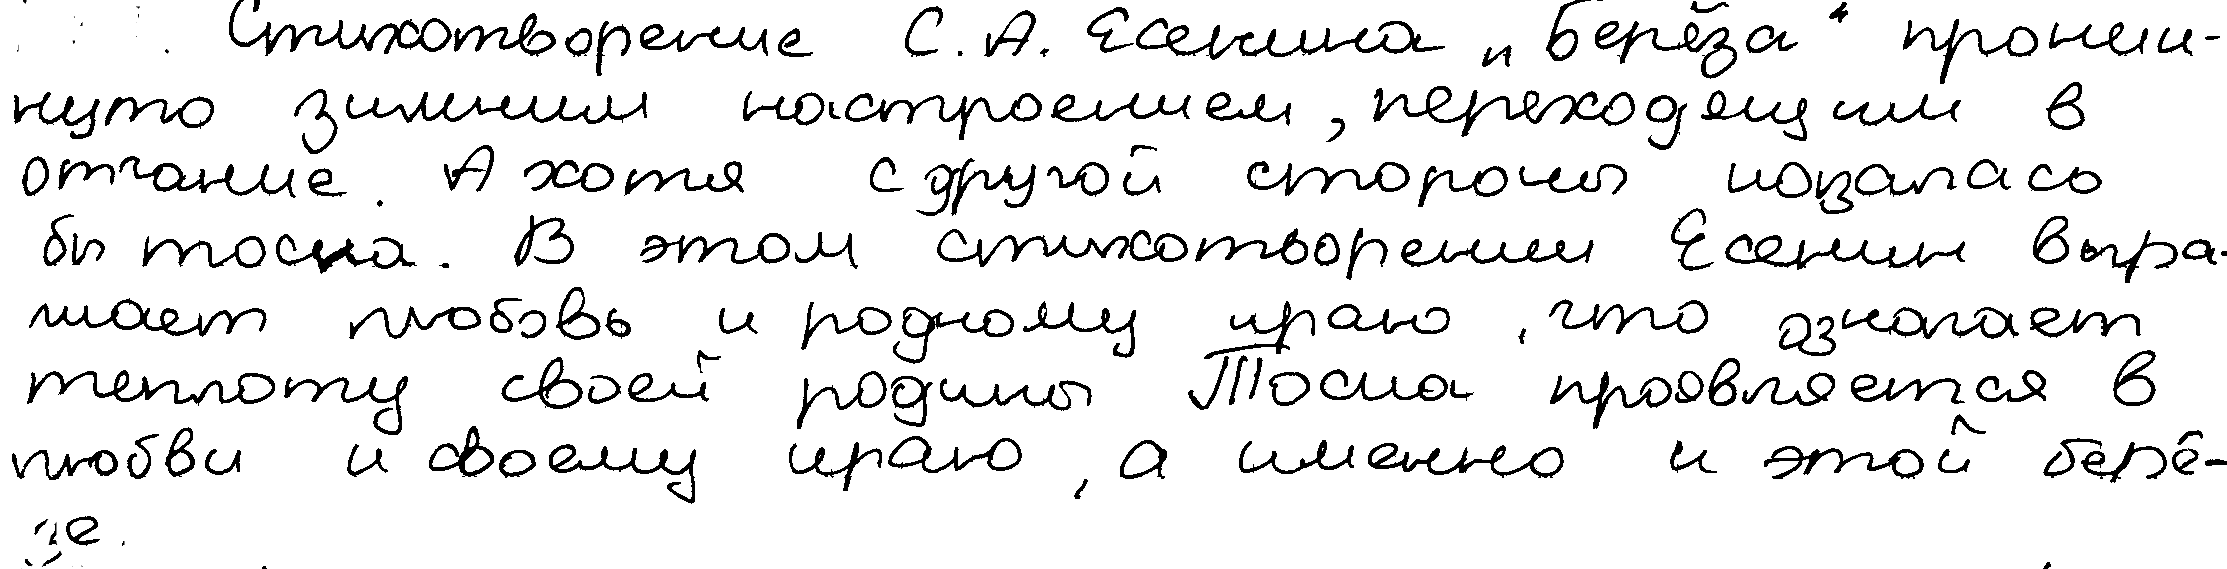 Стихотворение С.А. Есенина „Берёза“ проник-
нуто зимним настроением, переходящим в
отчание. А хотя с другой стороны казалась
бы тоска. В этом стихотворении Есенин выра-
жает любовь к родному краю, что означает
теплоту своей родины Тоска проявляется в
любви к своему краю, а именно к этой берё-
зе.